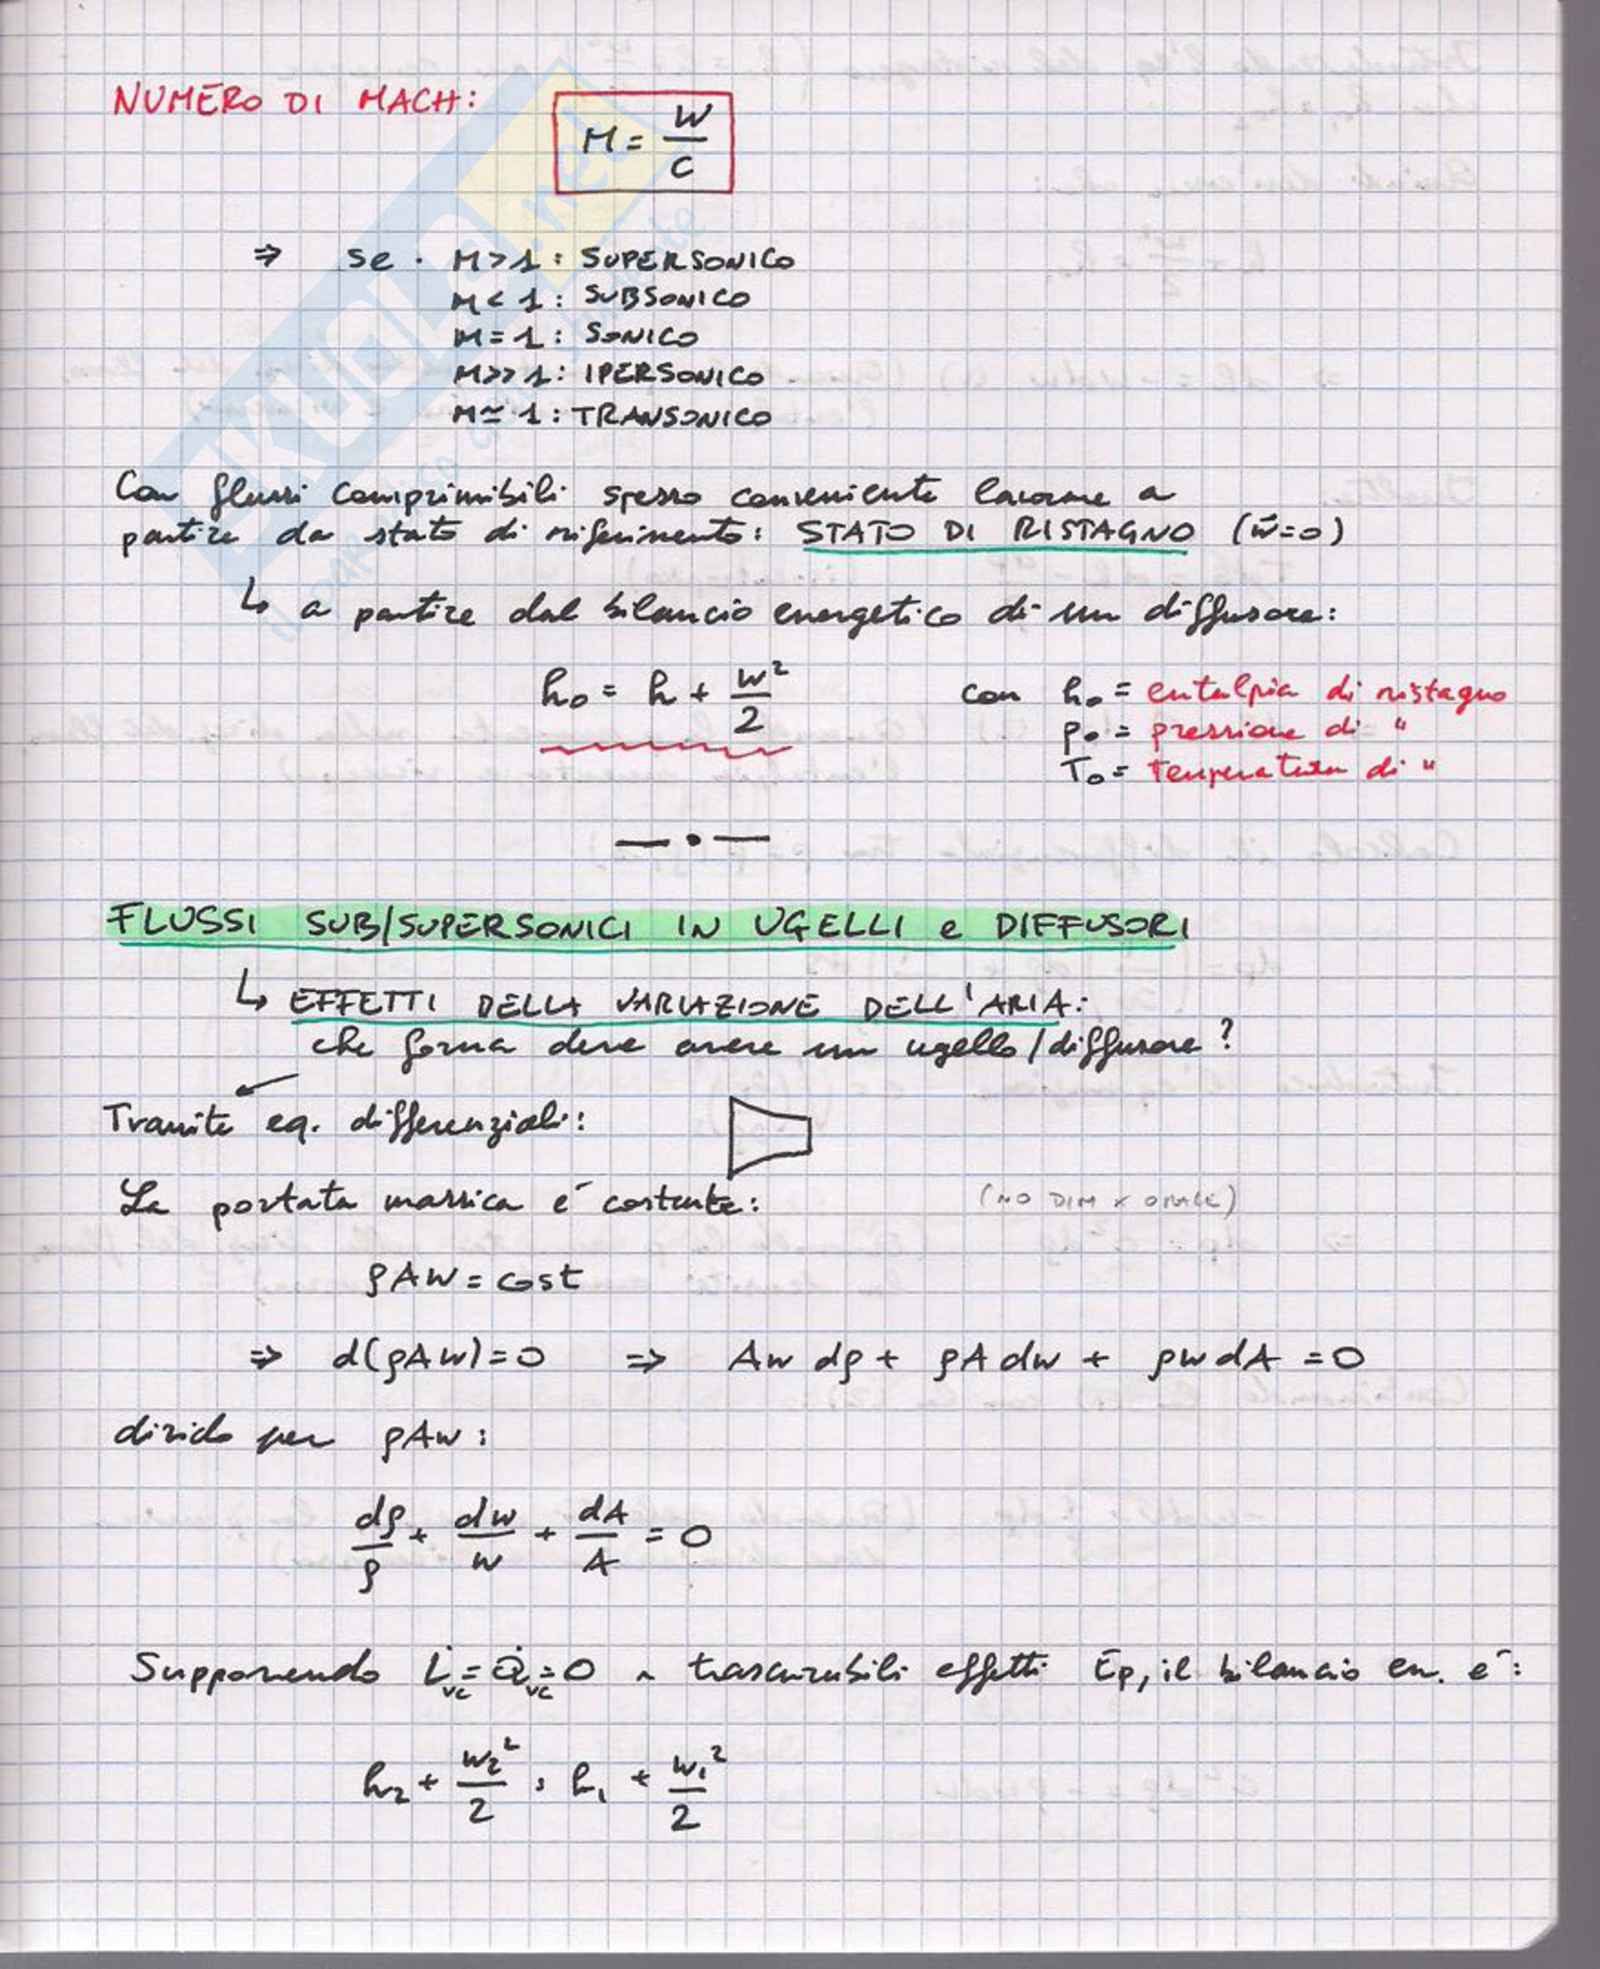 NUMERO DI MACH:
M = w/c
⇒ se · M>1 : SUPERSONICO
M<1 : SUBSONICO
M=1 : SONICO
M>>1 : IPERSONICO
M≃1 : TRANSONICO
Con flussi comprimibili spesso conveniente lavorare a
partire da stato di riferimento: STATO DI RISTAGNO (w̄=0)
↳ a partire dal bilancio energetico di un diffusore:
h₀ = h + w²/2 con h₀ = entalpia di ristagno
p₀ = pressione di "
T₀ = temperatura di "
— • —
FLUSSI SUB/SUPERSONICI IN UGELLI e DIFFUSORI
↳ EFFETTI DELLA VARIAZIONE DELL'ARIA:
che forma deve avere un ugello/diffusore?
Tramite eq. differenziali:
La portata massica è costante: (NO DIM x ORALE)
ρAw = cost
⇒ d(ρAw)=0 ⇒ Aw dρ + ρA dw + ρw dA = 0
divido per ρAw:
dρ/ρ + dw/w + dA/A = 0
Supponendo L̇vc = Q̇vc = 0 ~ trascurabili effetti Ep, il bilancio en. è:
h₂ + w₂²/2 = h₁ + w₁²/2